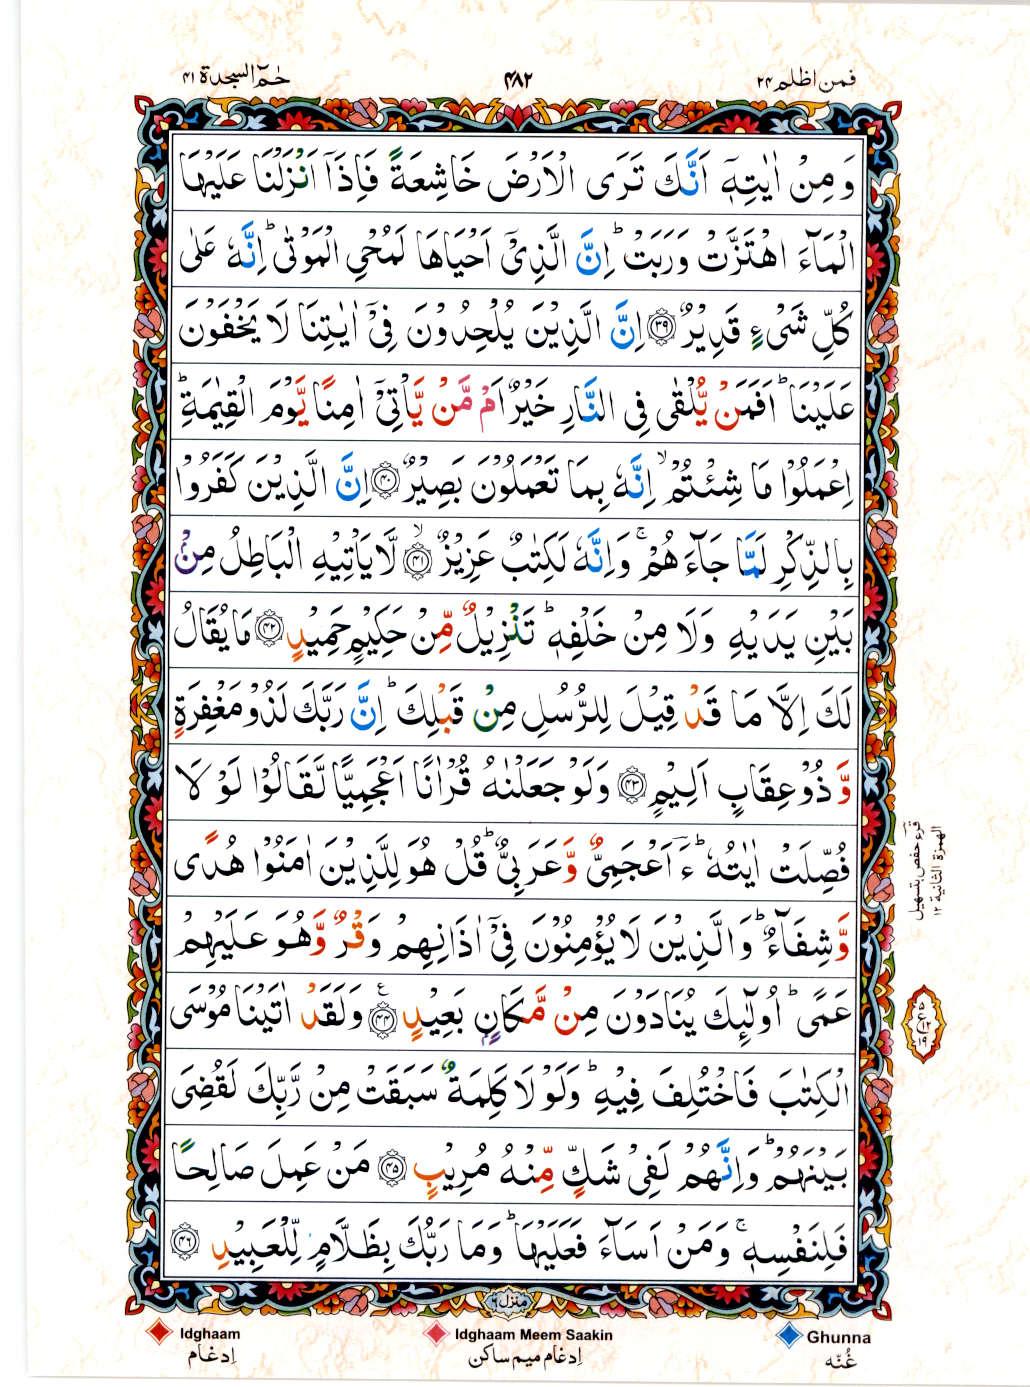 فمن اظلم ۲۴
۴۸۲
حٰمٓ السجدة ۴۱
وَ مِنْ اٰيٰتِهٖۤ اَنَّكَ تَرَى الْاَرْضَ خَاشِعَةً فَاِذَاۤ اَنْزَلْنَا عَلَيْهَا
الْمَآءَ اهْتَزَّتْ وَرَبَتْ ؕ اِنَّ الَّذِيْۤ اَحْيَاهَا لَمُحْيِ الْمَوْتٰى ؕ اِنَّهٗ عَلٰى
كُلِّ شَيْءٍ قَدِيْرٌ ۳۹ اِنَّ الَّذِيْنَ يُلْحِدُوْنَ فِيْۤ اٰيٰتِنَا لَا يَخْفَوْنَ
عَلَيْنَا ؕ اَفَمَنْ يُّلْقٰى فِي النَّارِ خَيْرٌ اَمْ مَّنْ يَّاْتِيْۤ اٰمِنًا يَّوْمَ الْقِيٰمَةِ ؕ
اِعْمَلُوْا مَا شِئْتُمْ ۙ اِنَّهٗ بِمَا تَعْمَلُوْنَ بَصِيْرٌ ۴۰ اِنَّ الَّذِيْنَ كَفَرُوْا
بِالذِّكْرِ لَمَّا جَآءَهُمْ ۚ وَاِنَّهٗ لَكِتٰبٌ عَزِيْزٌ ۙ ۴۱ لَّا يَاْتِيْهِ الْبَاطِلُ مِنْۢ
بَيْنِ يَدَيْهِ وَلَا مِنْ خَلْفِهٖ ؕ تَنْزِيْلٌ مِّنْ حَكِيْمٍ حَمِيْدٍ ۴۲ مَا يُقَالُ
لَكَ اِلَّا مَا قَدْ قِيْلَ لِلرُّسُلِ مِنْ قَبْلِكَ ؕ اِنَّ رَبَّكَ لَذُوْ مَغْفِرَةٍ
وَّ ذُوْ عِقَابٍ اَلِيْمٍ ۴۳ وَلَوْ جَعَلْنٰهُ قُرْاٰنًا اَعْجَمِيًّا لَّقَالُوْا لَوْ لَا
فُصِّلَتْ اٰيٰتُهٗ ؕ ءَؔاَعْجَمِيٌّ وَّ عَرَبِيٌّ ؕ قُلْ هُوَ لِلَّذِيْنَ اٰمَنُوْا هُدًى
وَّ شِفَآءٌ ؕ وَالَّذِيْنَ لَا يُؤْمِنُوْنَ فِيْۤ اٰذَانِهِمْ وَقْرٌ وَّ هُوَ عَلَيْهِمْ
عَمًى ؕ اُولٰٓئِكَ يُنَادَوْنَ مِنْ مَّكَانٍۭ بَعِيْدٍ ۴۴ ع وَلَقَدْ اٰتَيْنَا مُوْسَى
الْكِتٰبَ فَاخْتُلِفَ فِيْهِ ؕ وَلَوْلَا كَلِمَةٌ سَبَقَتْ مِنْ رَّبِّكَ لَقُضِيَ
بَيْنَهُمْ ؕ وَاِنَّهُمْ لَفِيْ شَكٍّ مِّنْهُ مُرِيْبٍ ۴۵ مَنْ عَمِلَ صَالِحًا
فَلِنَفْسِهٖ ۚ وَمَنْ اَسَآءَ فَعَلَيْهَا ؕ وَمَا رَبُّكَ بِظَلَّامٍ لِّلْعَبِيْدِ ۴۶
قرء حفص بتسهيل
الهمزة الثانية ۱۲
منزل ۶
Idghaam
Idghaam Meem Saakin
Ghunna
اِدغام
اِدغام ميم ساكن
غُنّه